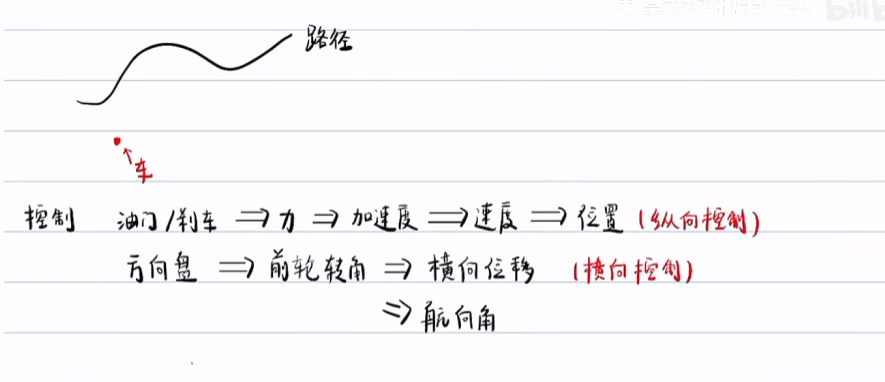 路径
车
控制 油门/刹车 ⇒ 力 ⇒ 加速度 ⇒ 速度 ⇒ 位置 (纵向控制)
方向盘 ⇒ 前轮转角 ⇒ 横向位移 (横向控制)
⇒ 航向角